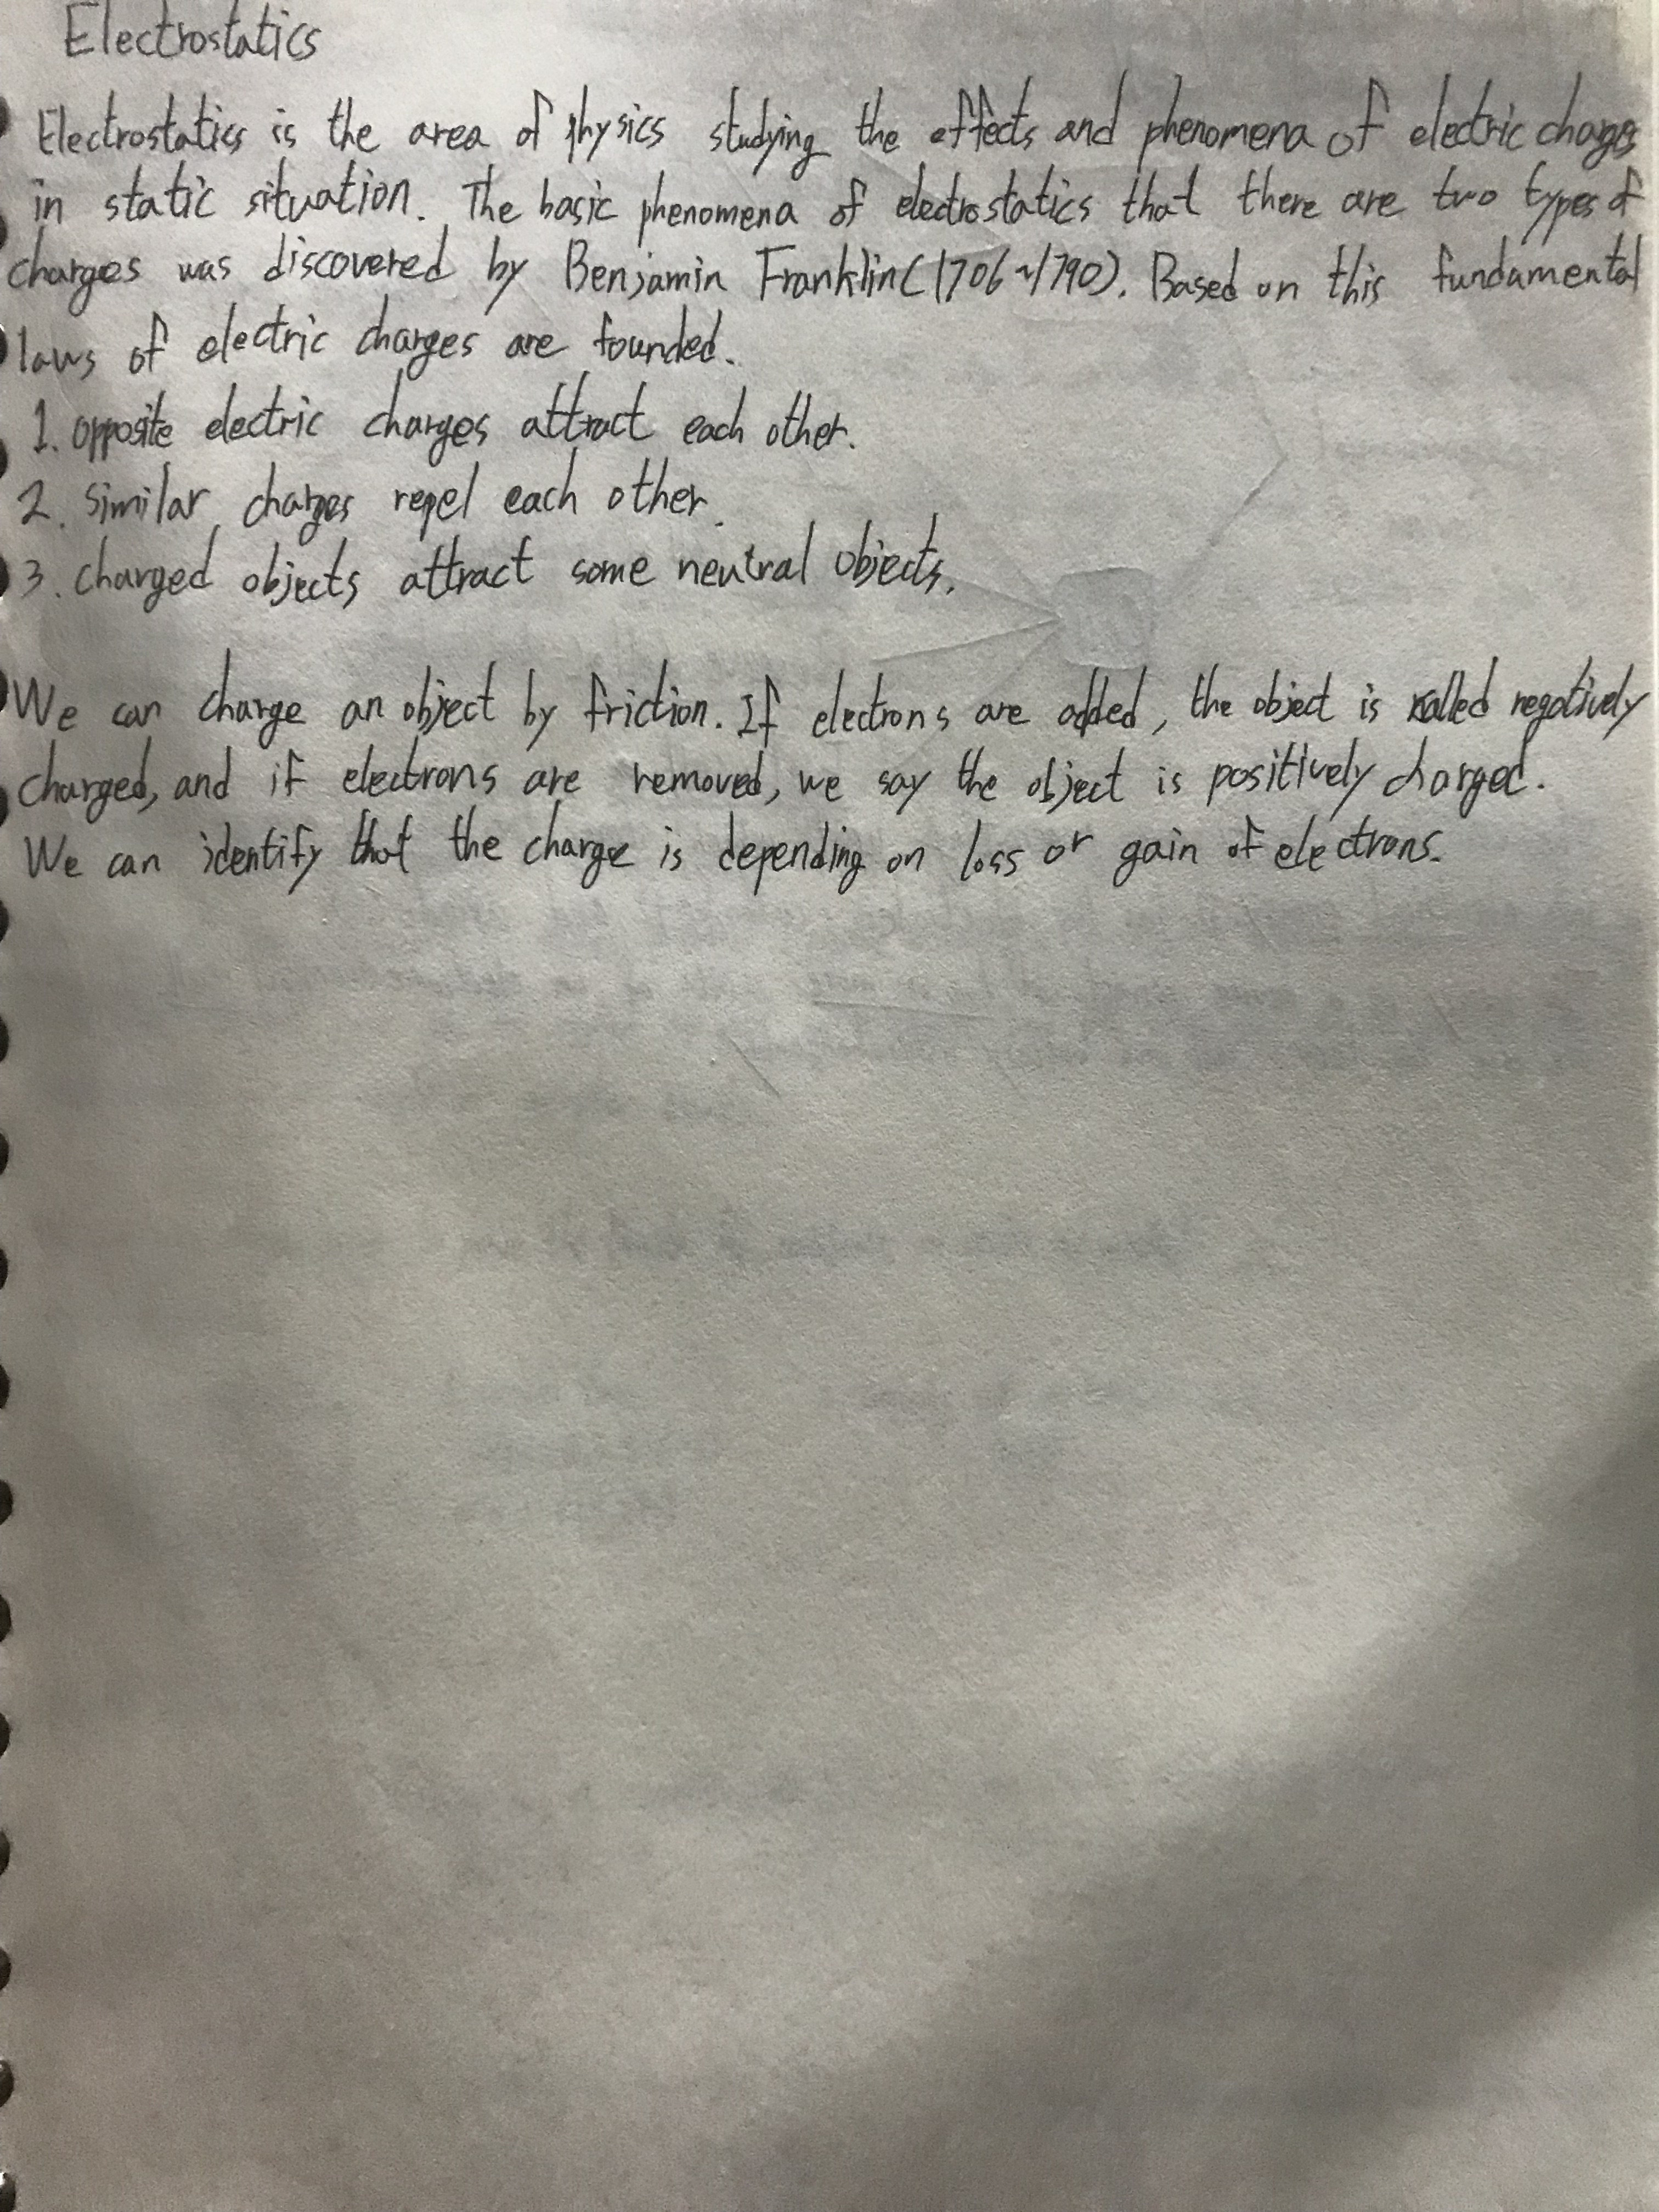 Electrostatics
Electrostatics is the area of physics studying the effects and phenomena of electric charges
in static situation. The basic phenomena of electrostatics that there are two types of
charges was discovered by Benjamin Franklin(1706~1790). Based on this fundamental
laws of electric charges are founded.
1. opposite electric charges attract each other.
2. similar charges repel each other.
3. charged objects attract some neutral objects.
We can charge an object by friction. If electrons are added, the object is called negatively
charged, and if electrons are removed, we say the object is positively charged.
We can identify that the charge is depending on loss or gain of electrons.